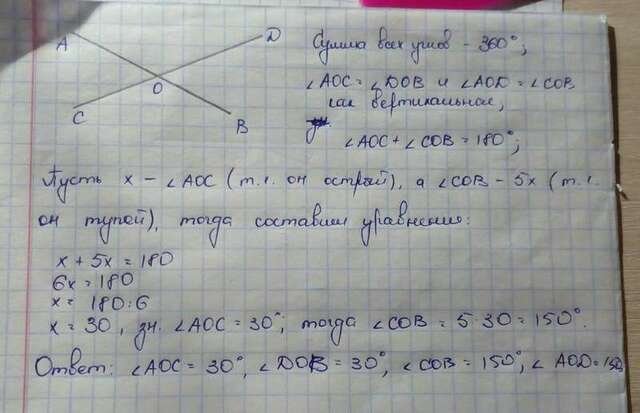 A
D
O
C
B
Сумма всех углов - 360°;
∠AOC = ∠DOB и ∠AOD = ∠COB
как вертикальные,
∠AOC + ∠COB = 180°;
Пусть x - ∠AOC (т.к. он острый), а ∠COB - 5x (т.к.
он тупой), тогда составим уравнение:
x + 5x = 180
6x = 180
x = 180:6
x = 30, зн. ∠AOC = 30°; тогда ∠COB = 5·30 = 150°.
Ответ: ∠AOC = 30°, ∠DOB = 30°, ∠COB = 150°, ∠AOD = 150